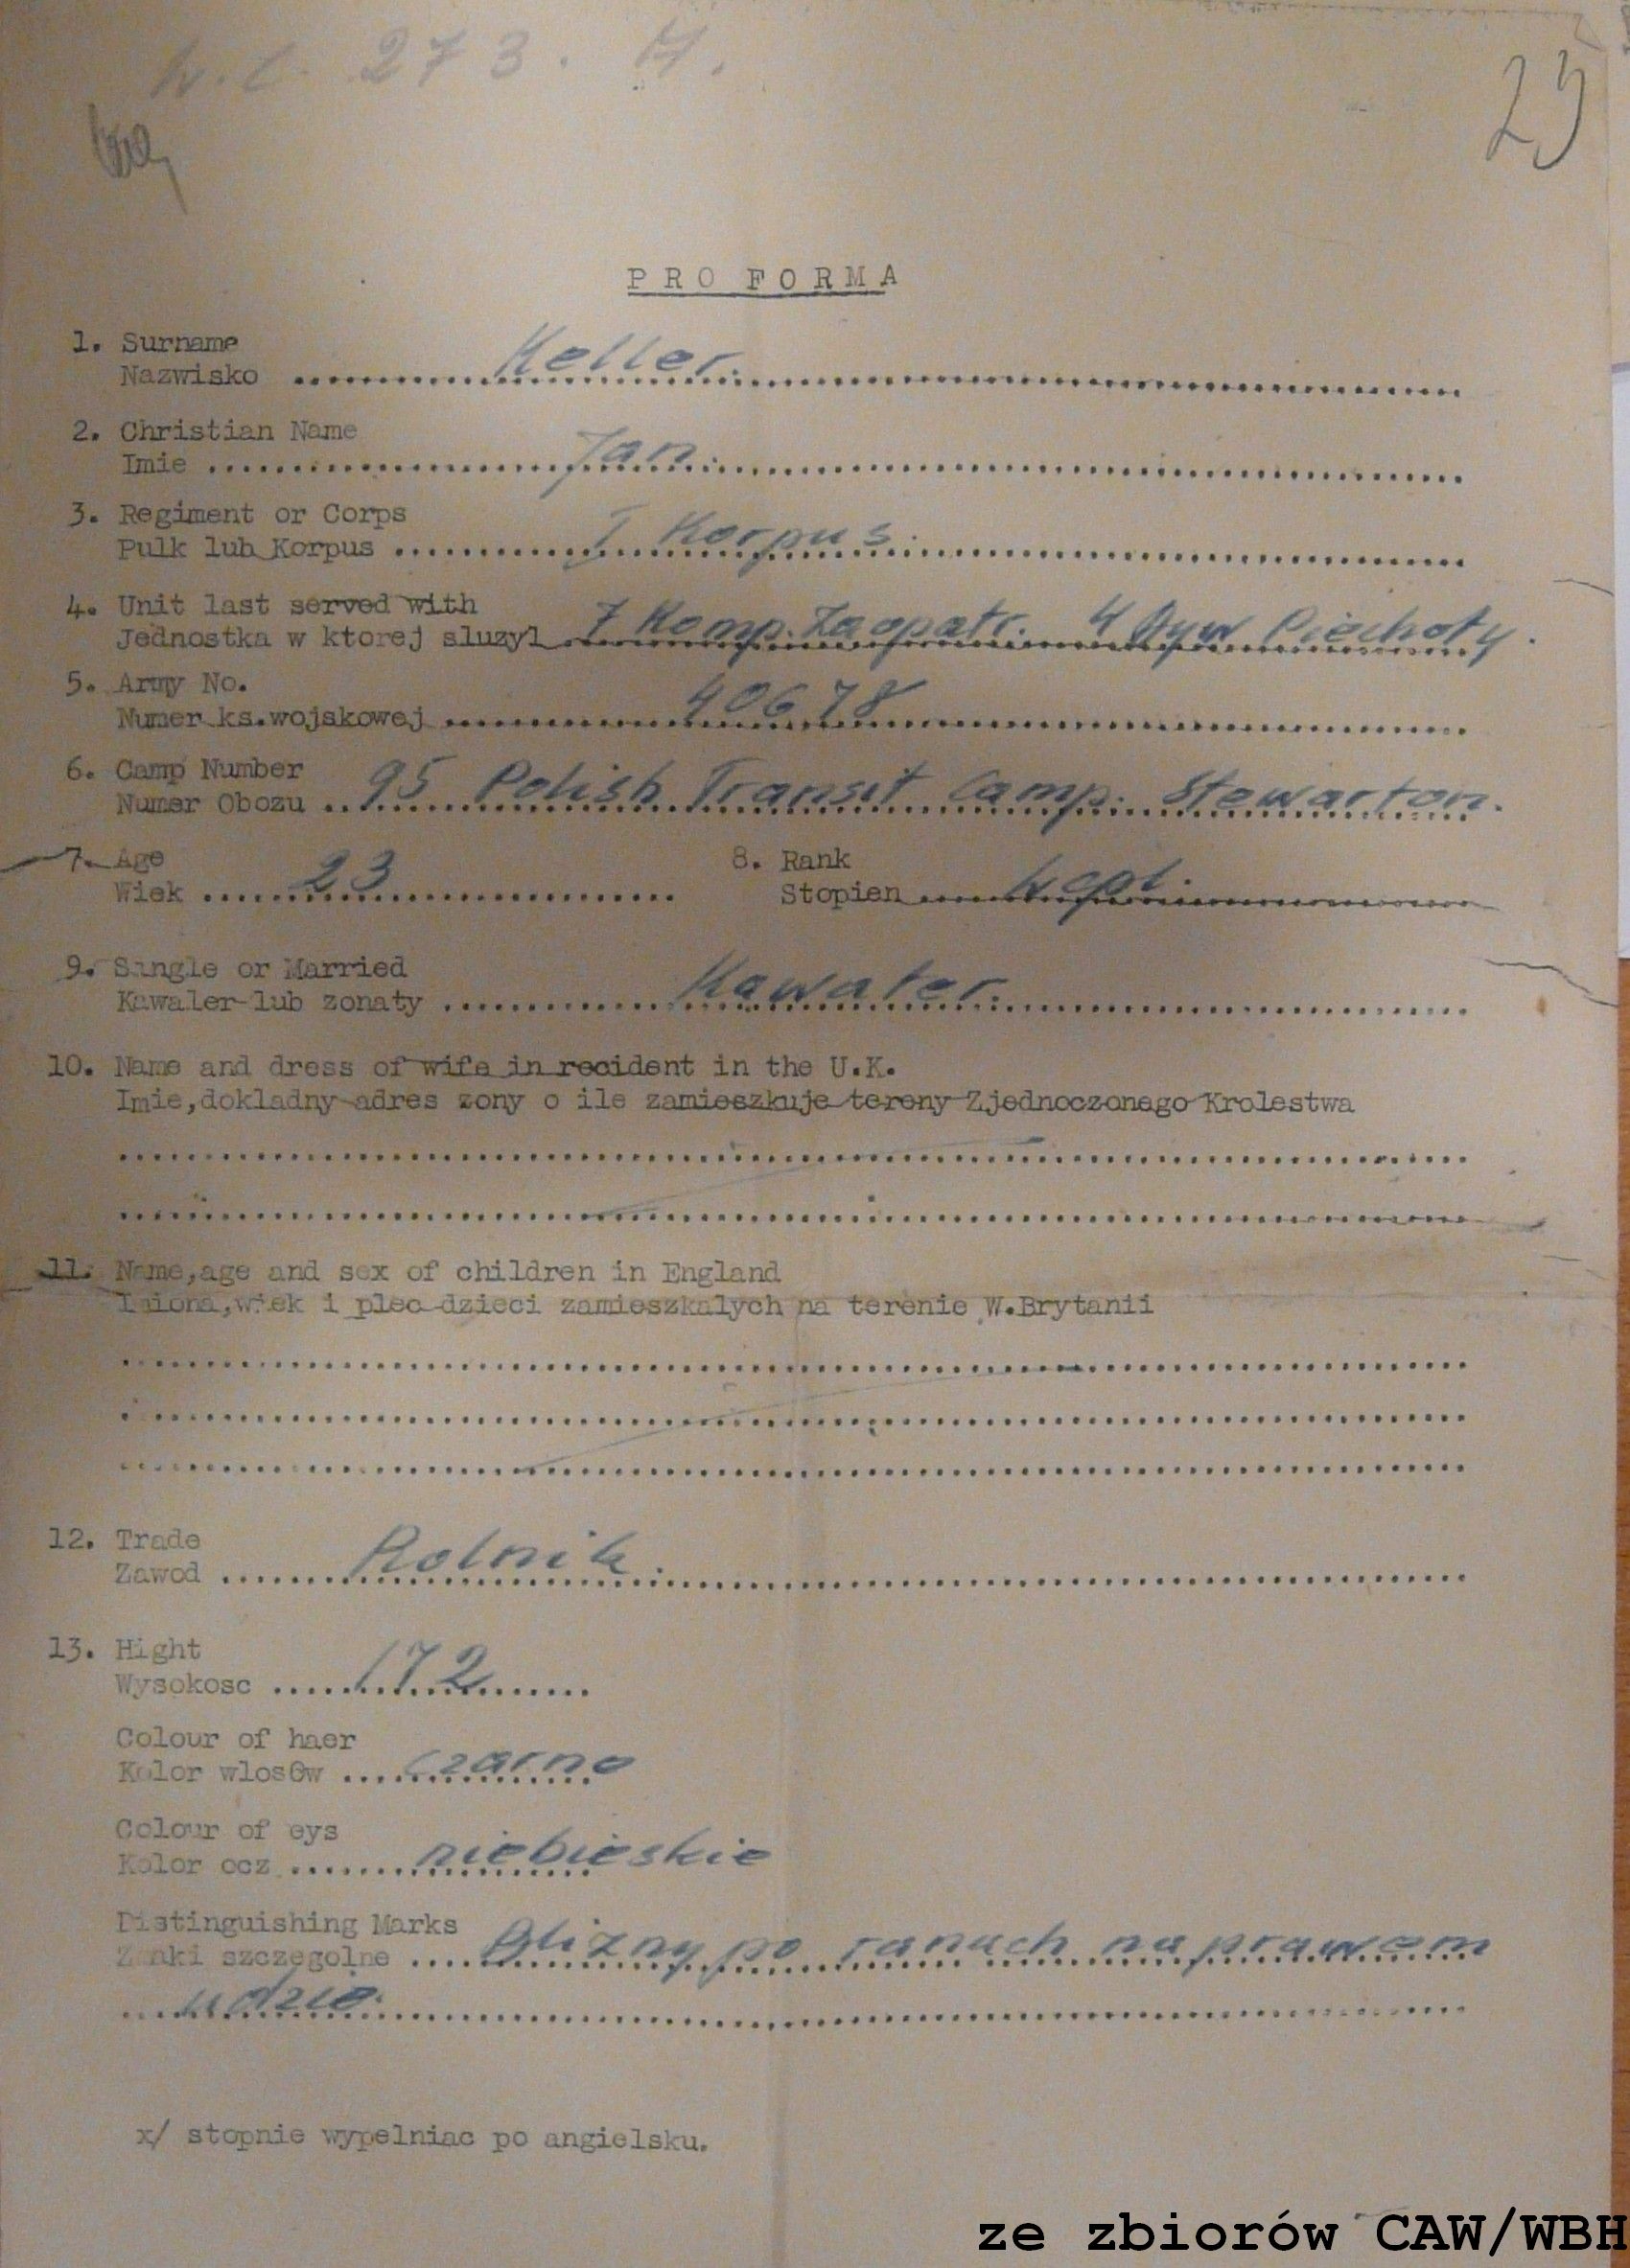 273. H.
29
PRO FORMA
1. Surname
Nazwisko Keller.
2. Christian Name
Imie Jan.
3. Regiment or Corps
Pulk lub Korpus I Korpus.
4. Unit last served with
Jednostka w ktorej sluzyl 7 Komp. Zaopatr. 4 Dyw Piechoty.
5. Army No.
Numer ks.wojskowej 40678
6. Camp Number
Numer Obozu 95 Polish Transit Camp. Stewarton.
7. Age
Wiek 23
8. Rank
Stopien kapr.
9. Single or Married
Kawaler lub zonaty Kawaler.
10. Name and dress of wife in recident in the U.K.
Imie,dokladny adres zony o ile zamieszkuje tereny Zjednoczonego Krolestwa
11. Name,age and sex of children in England
Imiona,wiek i plec dzieci zamieszkalych na terenie W.Brytanii
12. Trade
Zawod Rolnik.
13. Hight
Wysokosc 172
Colour of haer
Kolor wlosów czarne
Colour of eys
Kolor ocz niebieskie
Distinguishing Marks
Znaki szczegolne Blizny po ranach na prawem
udzie.
x/ stopnie wypelniac po angielsku.
ze zbiorów CAW/WBH